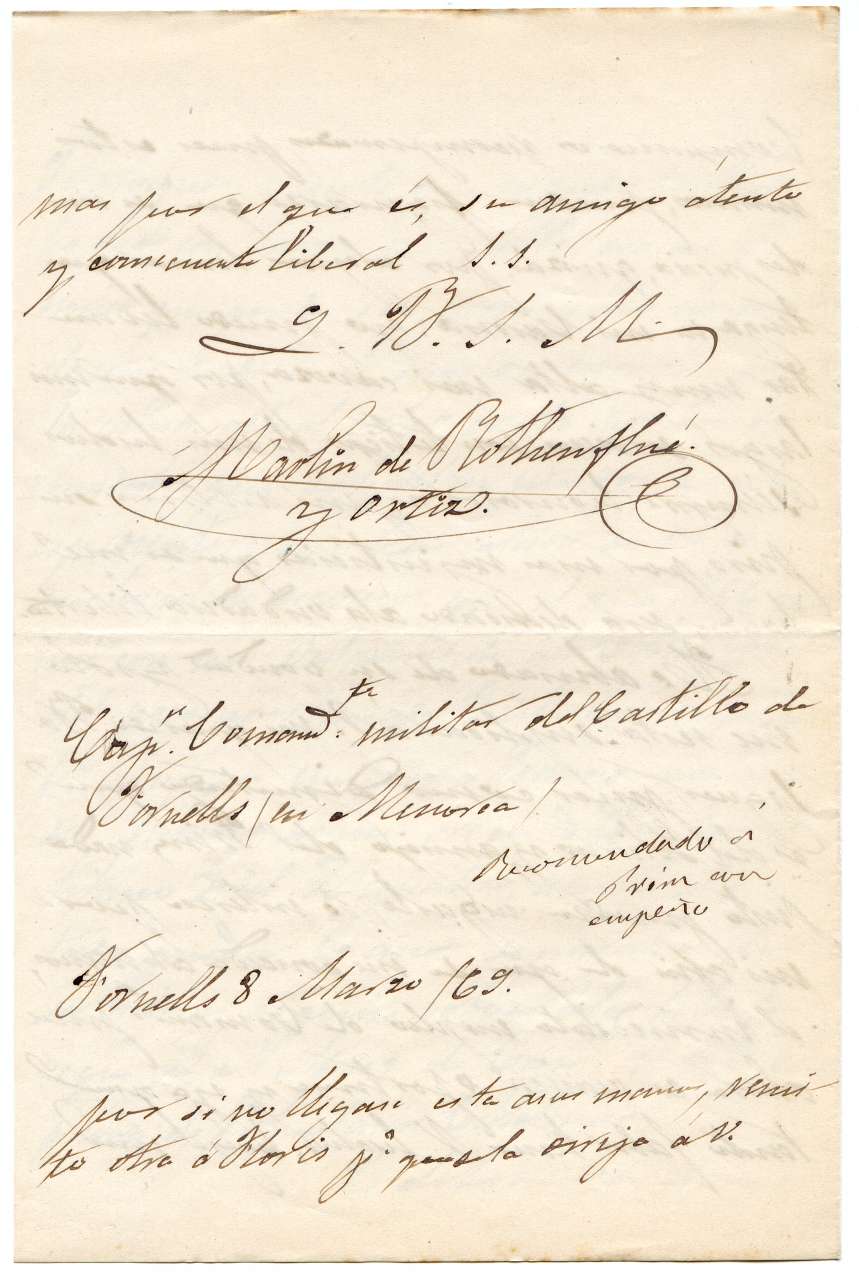 mas por el que és, su amigo átento
y consecuente liberal S. S.
Q. B. S. M.
Martin de Rothenflué.
y Ortiz.
Capn. Comandte. militar del Castillo de
Fornells (en Menorca)
Recomendado á
Prim con
empeño
Fornells 8 Marzo /69.
por si no llegase esta a sus manos, remi
to otra á Floris pa. que se la dirija á V.